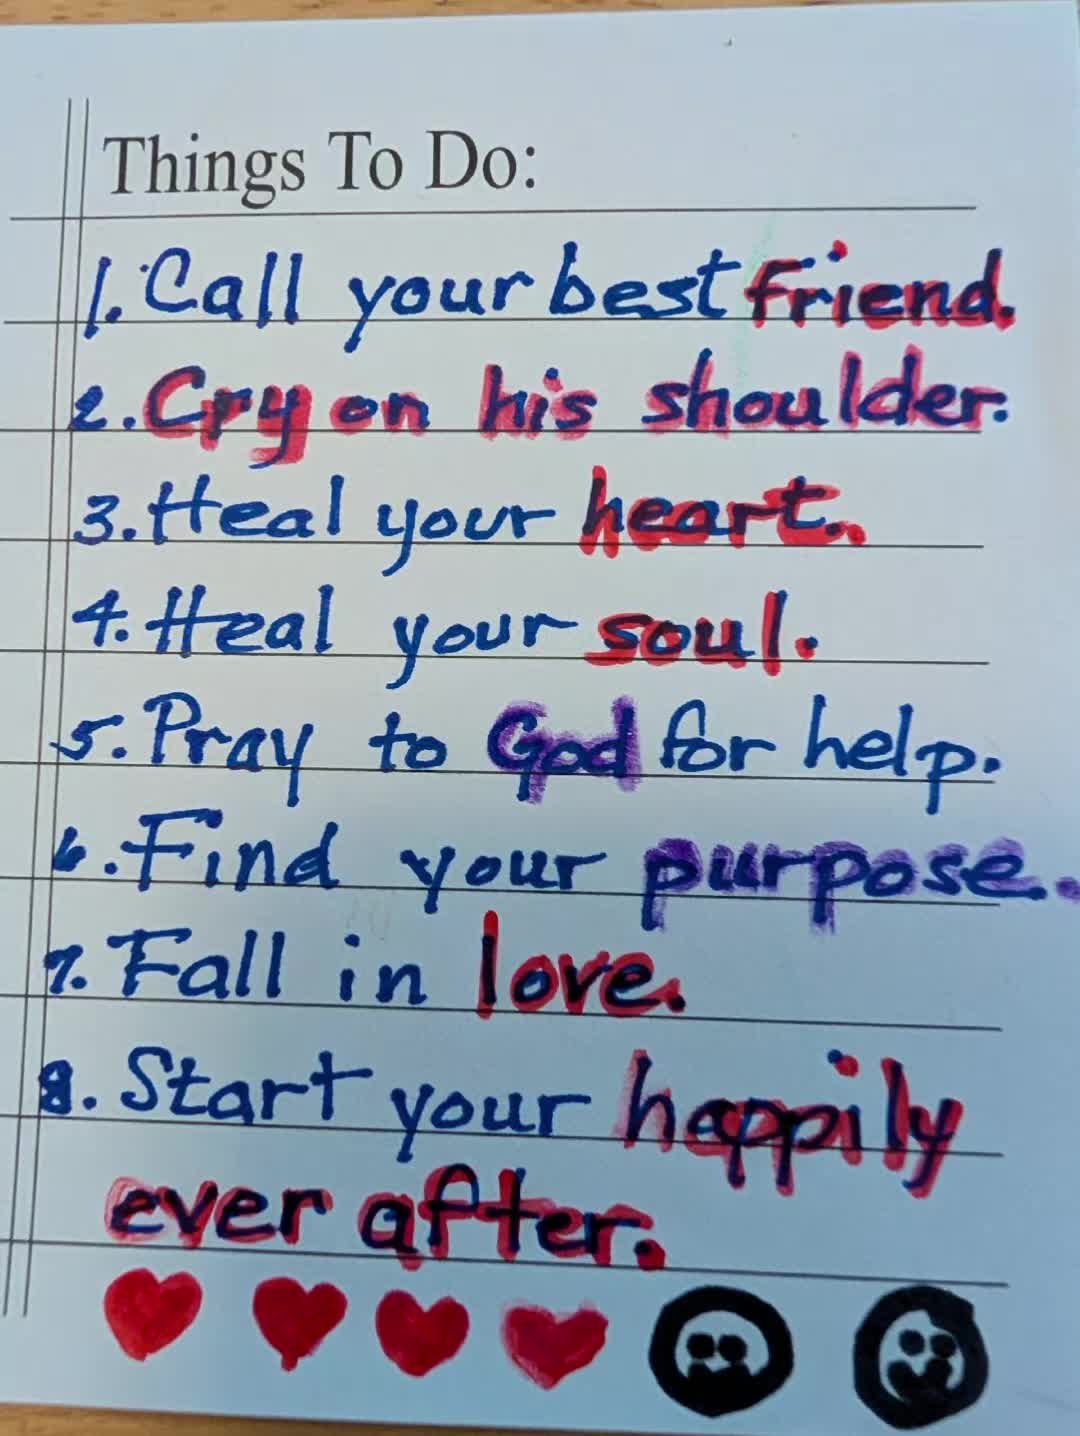 Things To Do:
1. Call your best friend.
2. Cry on his shoulder.
3. Heal your heart.
4. Heal your soul.
5. Pray to God for help.
6. Find your purpose.
7. Fall in love.
8. Start your happily
ever after.